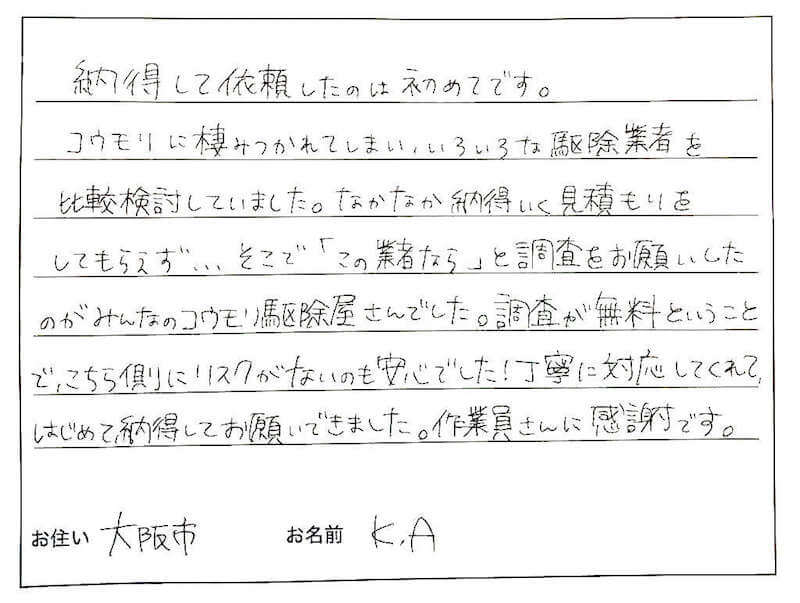 納得して依頼したのは初めてです。
コウモリに棲みつかれてしまい、いろいろな駆除業者を
比較検討していました。なかなか納得いく見積もりを
してもらえず、、、そこで「この業者なら」と調査をお願いした
のがみんなのコウモリ駆除屋さんでした。調査が無料ということ
で、こちら側にリスクがないのも安心でした!丁寧に対応してくれて、
はじめて納得してお願いできました。作業員さんに感謝です。
お住い 大阪市 お名前 K.A